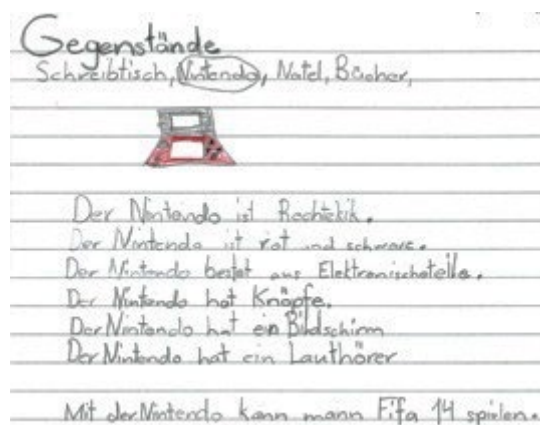 Gegenstände
Schreibtisch, Nintendo, Natel, Bücher,
Der Nintendo ist Rechtekik.
Der Nintendo ist rot und schwarz.
Der Nintendo bestet aus Elektronischeteile.
Der Nintendo hat Knöpfe.
Der Nintendo hat ein Bildschirm
Der Nintendo hat ein Lauthörer
Mit der Nintendo kann mann Fifa 14 spielen.